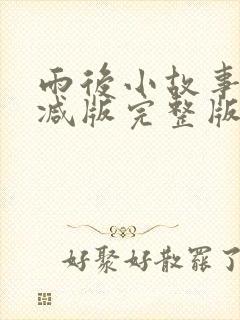 雨後小故事
减版完整版
好聚好散罷了